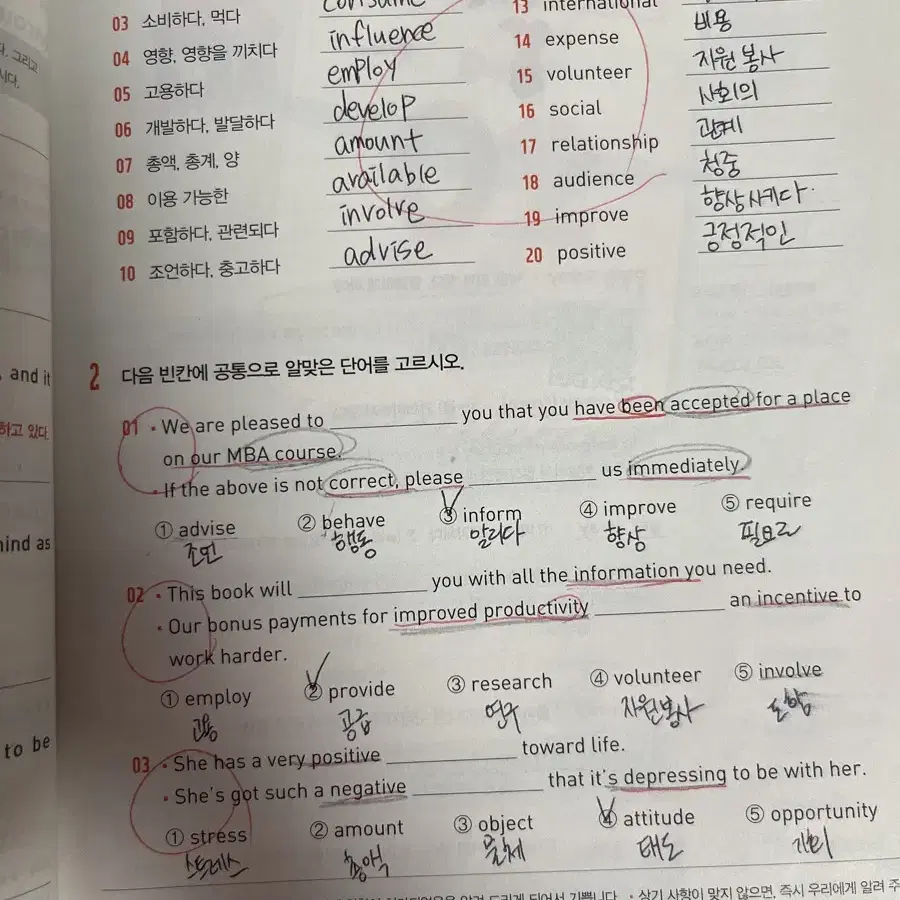 03 소비하다, 먹다 consume
04 영향, 영향을 끼치다 influence
05 고용하다 employ
06 개발하다, 발달하다 develop
07 총액, 총계, 양 amount
08 이용 가능한 available
09 포함하다, 관련되다 involve
10 조언하다, 충고하다 advise
13 international
14 expense 비용
15 volunteer 자원 봉사
16 social 사회의
17 relationship 관계
18 audience 청중
19 improve 향상시키다.
20 positive 긍정적인
2 다음 빈칸에 공통으로 알맞은 단어를 고르시오.
01 • We are pleased to ____________ you that you have been accepted for a place
on our MBA course.
• If the above is not correct, please ____________ us immediately.
① advise ② behave ③ inform ④ improve ⑤ require
조언 행동 알리다 향상 필요로
02 • This book will ____________ you with all the information you need.
• Our bonus payments for improved productivity ____________ an incentive to
work harder.
① employ ② provide ③ research ④ volunteer ⑤ involve
고용 공급 연구 자원봉사
03 • She has a very positive ____________ toward life.
• She's got such a negative ____________ that it's depressing to be with her.
① stress ② amount ③ object ④ attitude ⑤ opportunity
스트레스 총액 물체 태도 기회
• 상기 사항이 맞지 않으면, 즉시 우리에게 알려 주
그리고
and it
하고 있다.
mind as
to be